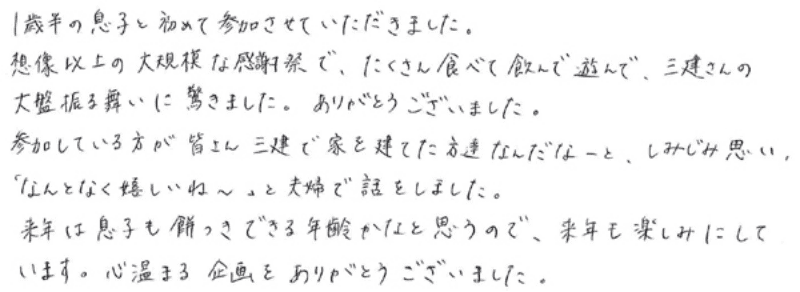 1歳半の息子と初めて参加させていただきました。
想像以上の大規模な感謝祭で、たくさん食べて飲んで遊んで、三建さんの
大盤振る舞いに驚きました。ありがとうございました。
参加している方が皆さん三建で家を建てた方達なんだなーと、しみじみ思い、
「なんとなく嬉しいね〜」と夫婦で話をしました。
来年は息子も餅つきできる年齢かなと思うので、来年も楽しみにして
います。心温まる企画をありがとうございました。